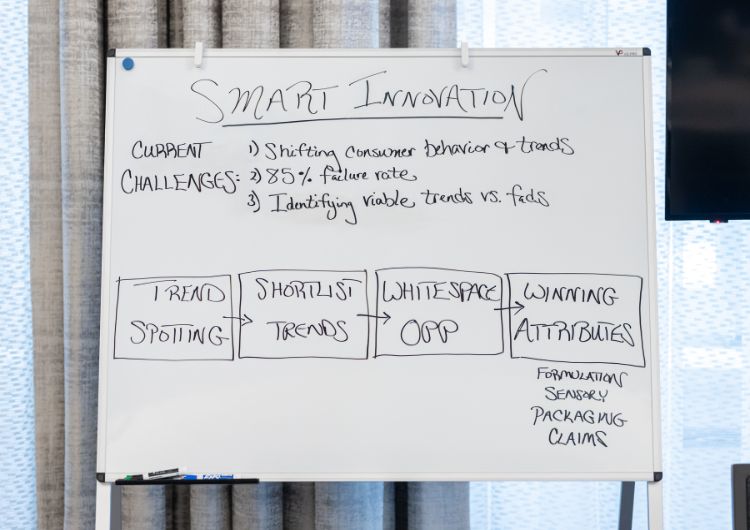 SMART INNOVATION
CURRENT CHALLENGES:
1) Shifting consumer behavior & trends
2) 85% failure rate
3) Identifying viable trends vs. fads
TREND SPOTTING
SHORTLIST TRENDS
WHITESPACE OPP
WINNING ATTRIBUTES
FORMULATION
SENSORY
PACKAGING
CLAIMS